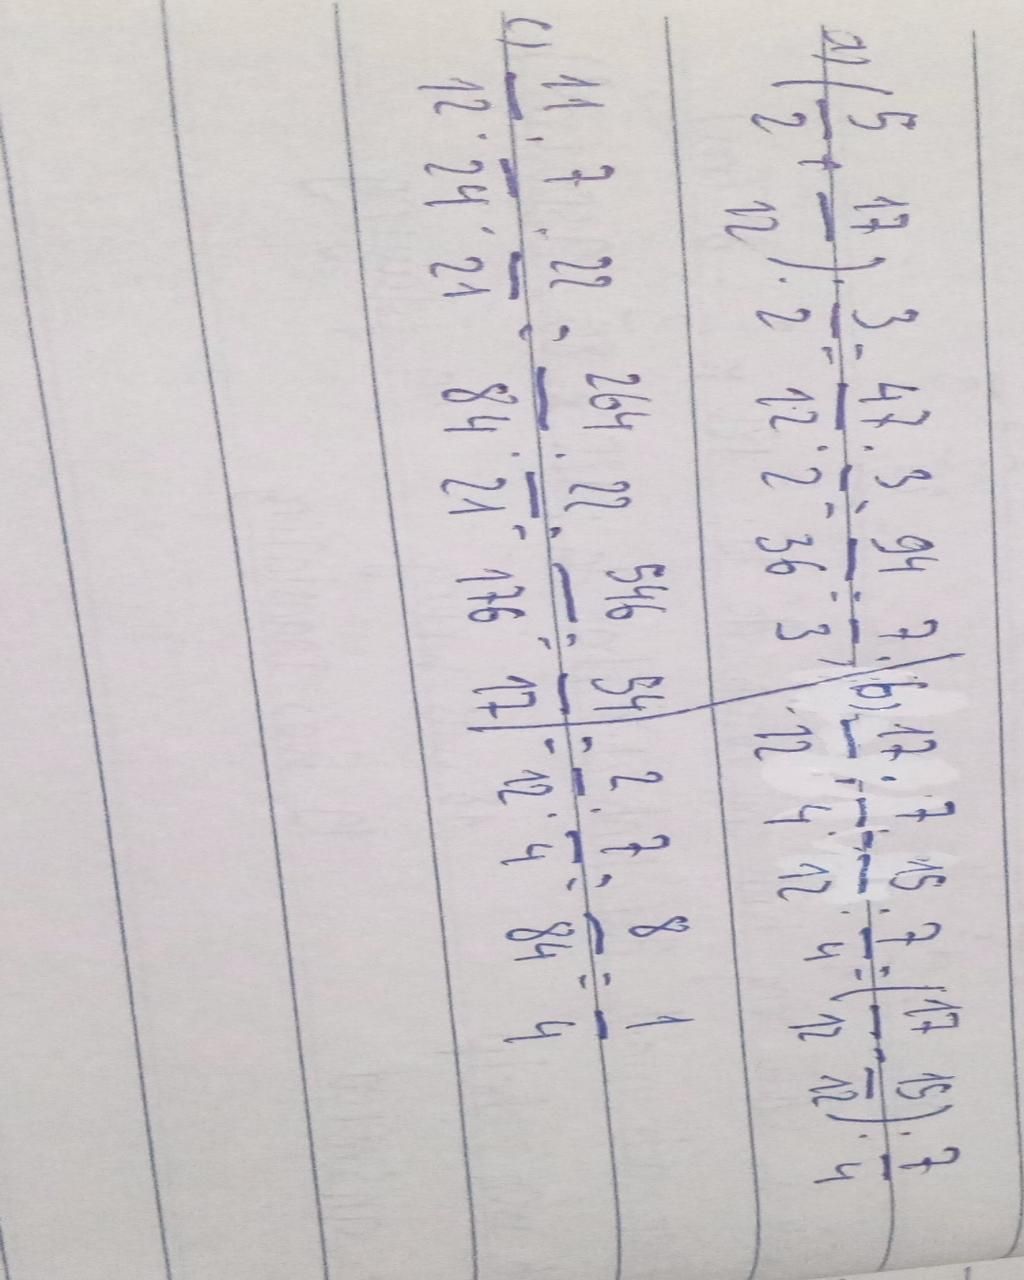 a) (5/2 + 17/12) · 3/2 = 47/12 · 3/2 = 94/36 = 7/3 b) 17/12 · 7/4 - 15/12 · 7/4 = (17/12 - 15/12) · 7/4
c) 11/12 · 7/24 · 22/21 = 264/84 · 22/21 = 546/176 = 54/17 = 2/12 · 7/4 = 8/84 = 1/4